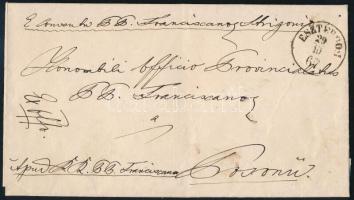 E Conventu PP. Franciscanor Strigonii
ESZTERGOM
29
10
Venerabili Officio Provincialatus
PP. Franciscanor
Ex Offo.
a
Apud PP. Franciscanos
Posonii.